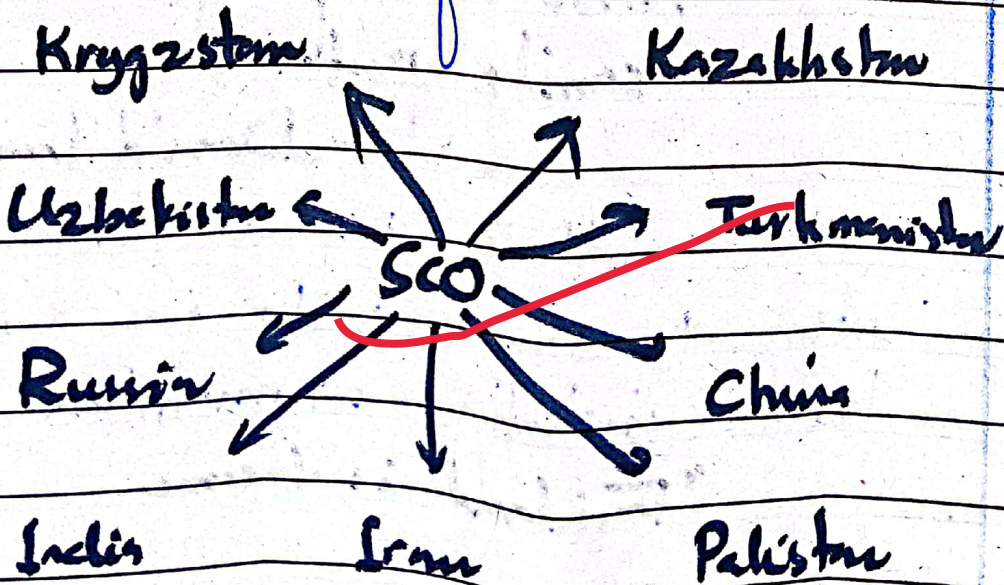 Krygzstan Kazakhstan
Uzbekistan Turkmenistan
SCO
Russia China
India Iran Pakistan